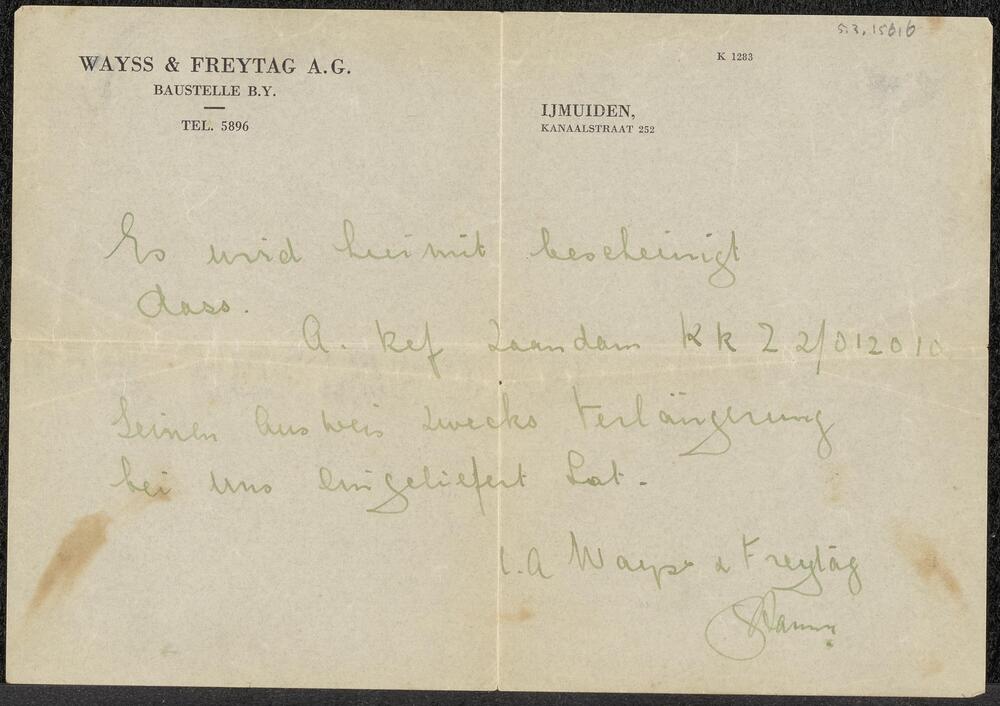 53.1561b
K 1283
WAYSS & FREYTAG A.G.
BAUSTELLE B.Y.
TEL. 5896
IJMUIDEN,
KANAALSTRAAT 252
Es wird hiermit bescheinigt
dass.
A. Kef Zaandam KK Z 2/012010
Seinen Ausweis zwecks Verlängerung
bei uns eingeliefert hat.
I.A Wayss & Freytag